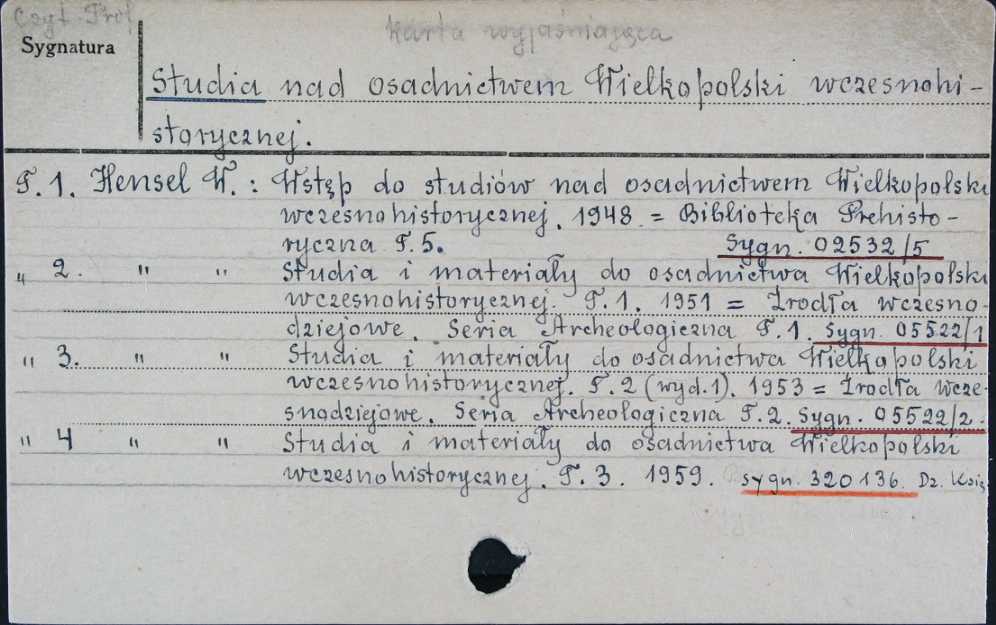 Czyt. Prof
karta wyjaśniająca
Sygnatura
Studia nad osadnictwem Wielkopolski wczesnohi-
storycznej.
T. 1. Hensel W. : Wstęp do studiów nad osadnictwem Wielkopolski
wczesnohistorycznej. 1948. = Biblioteka Prehisto-
ryczna T. 5. Sygn. 02532/5
„ 2. " " Studia i materiały do osadnictwa Wielkopolski
wczesnohistorycznej. T. 1. 1951 = Źrodła wczesno-
dziejowe. Seria Archeologiczna T. 1. Sygn. 05522/1
" 3. " " Studia i materiały do osadnictwa Wielkopolski
wczesnohistorycznej. T. 2 (wyd. 1). 1953 = Źrodła wcze-
snodziejowe. Seria Archeologiczna T. 2. Sygn. 05522/2.
" 4 " " Studia i materiały do osadnictwa Wielkopolski
wczesnohistorycznej. T. 3. 1959. Sygn. 320136. Dz. Ksią